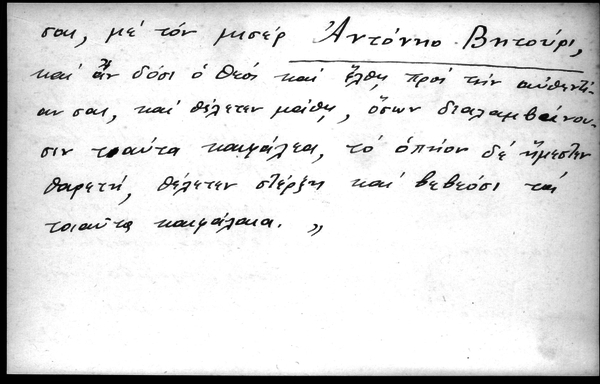 σας, μέ τόν μισέρ Ἀντόνηο Βητούρι,
καί ἄν δόσι ὁ θεός καί ἔλθη πρός τήν αὐθεντί-
αν σας, καί θέλετεν μάθη, ὅσων διαλαμβάνου-
σιν τοαύτα καιφάλεα, τό ὁπηον δέ ἤμεστεν
θαρετή, θέλετεν στέρξη καί βεβεόσι τά
τοιαῦτα καιφάλαια. „